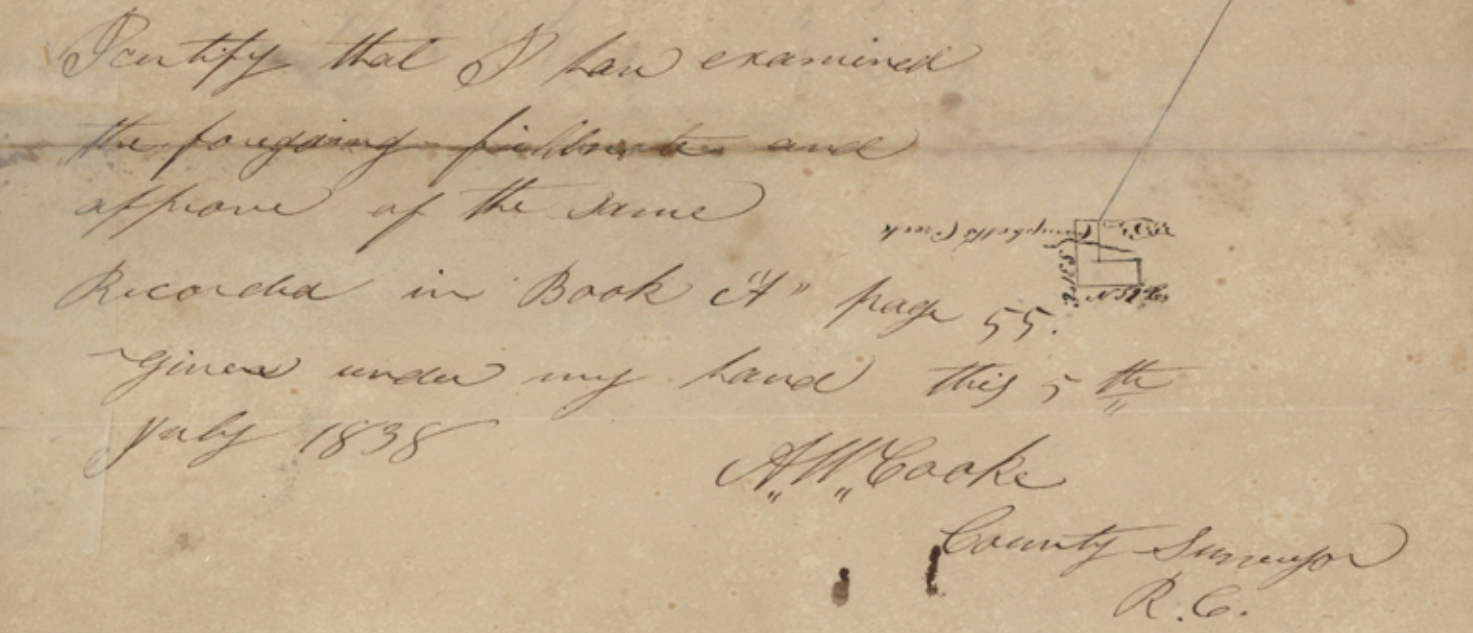 I certify that I have examined
the foregoing fieldnotes and
approve of the same
Campbells Creek
Recorded in Book "A" page 55.
Given under my hand this 5th
July 1838
A,, W,, Cooke
County Surveyor
R. C.